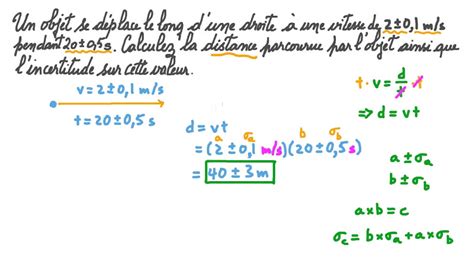 Un objet se déplace le long d'une droite à une vitesse de 2±0,1 m/s
pendant 20±0,5 s. Calculez la distance parcourue par l'objet ainsi que
l'incertitude sur cette valeur.
v = 2 ± 0,1 m/s
t = 20 ± 0,5 s
t · v = d/t · t
⇒ d = vt
d = vt
a σa b σb
= (2 ± 0,1 m/s)(20 ± 0,5 s)
= 40 ± 3 m
a ± σa
b ± σb
a×b = c
σc = b×σa + a×σb